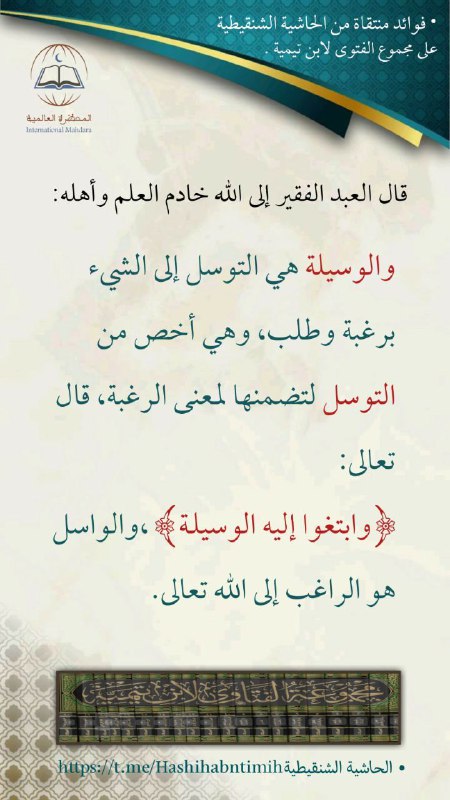 • فوائد منتقاة من الحاشية الشنقيطية
على مجموع الفتوى لابن تيمية .
المحضرة العالمية
International Mahdara
قال العبد الفقير إلى الله خادم العلم وأهله:
والوسيلة هي التوسل إلى الشيء
برغبة وطلب، وهي أخص من
التوسل لتضمنها لمعنى الرغبة، قال
تعالى:
﴿وابتغوا إليه الوسيلة﴾، والواسل
هو الراغب إلى الله تعالى.
مجموعة الفتاوى لابن تيمية
• الحاشية الشنقيطية https://t.me/Hashihabntimih